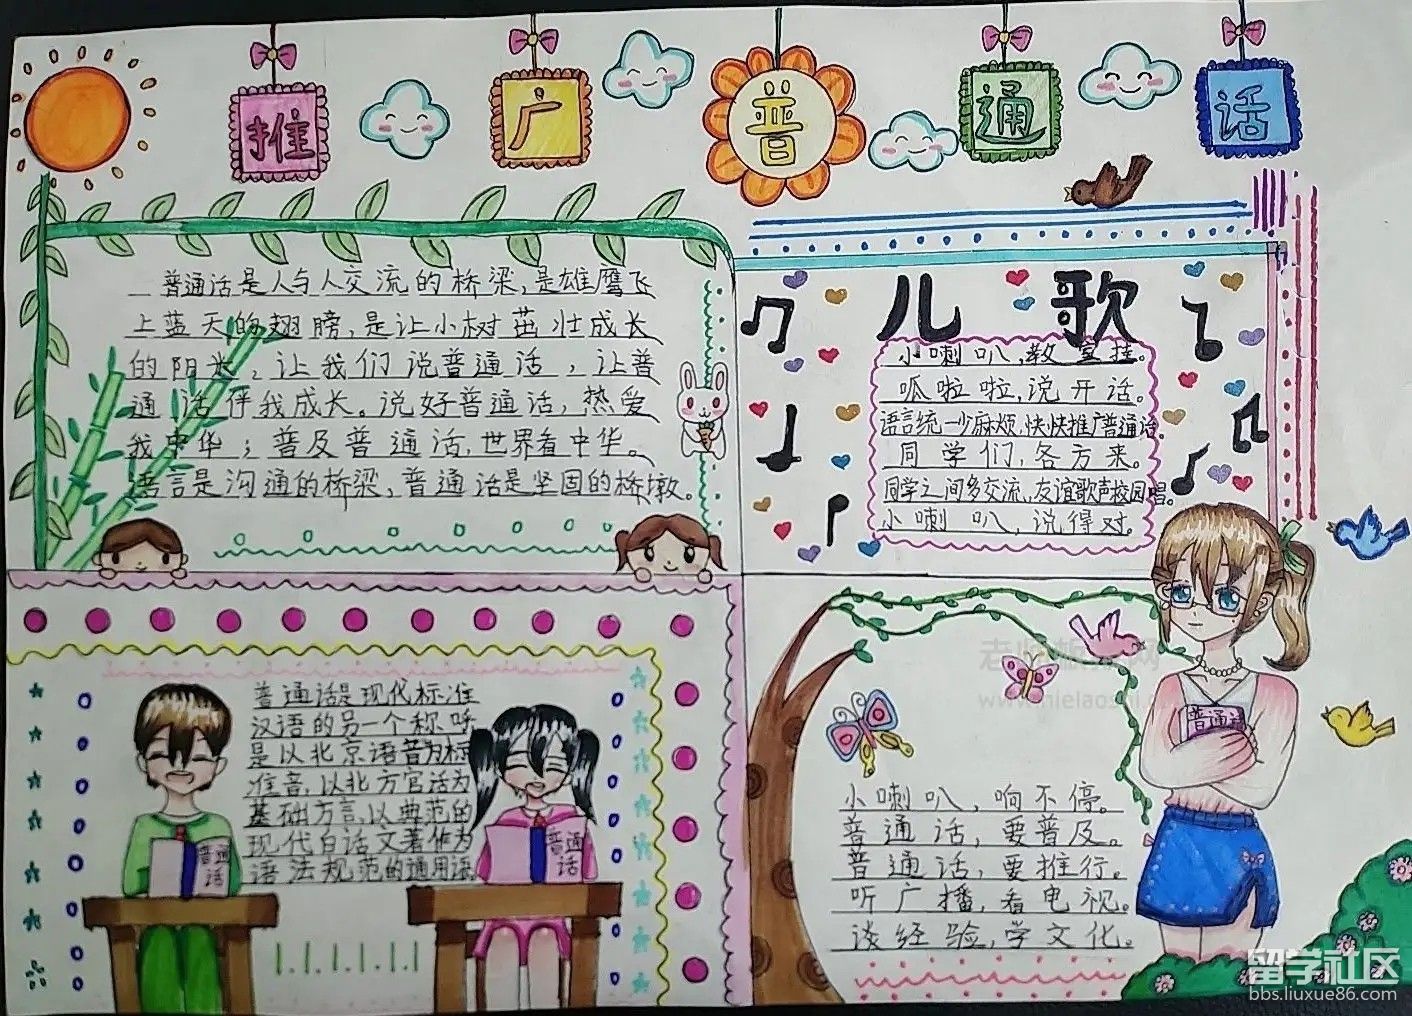 推广普通话
普通话是人与人交流的桥梁,是雄鹰飞
上蓝天的翅膀,是让小树茁壮成长
的阳光,让我们说普通话,让普
通话伴我成长。说好普通话,热爱
我中华;普及普通话,世界看中华。
语言是沟通的桥梁,普通话是坚固的桥墩。
儿歌
小喇叭,教室挂。
呱啦啦,说开话。
语言统一少麻烦,快快推广普通话。
同学们,各方来。
同学之间多交流,友谊歌声校园唱。
小喇叭,说得对。
普通话是现代标准
汉语的另一个称呼
是以北京语音为标
准音,以北方官话为
基础方言,以典范的
现代白话文著作为
语法规范的通用语
普通话
普通话
普通话
小喇叭,响不停。
普通话,要普及。
普通话,要推行。
听广播,看电视。
谈经验,学文化。
留学社区
bbs.liuxue86.com